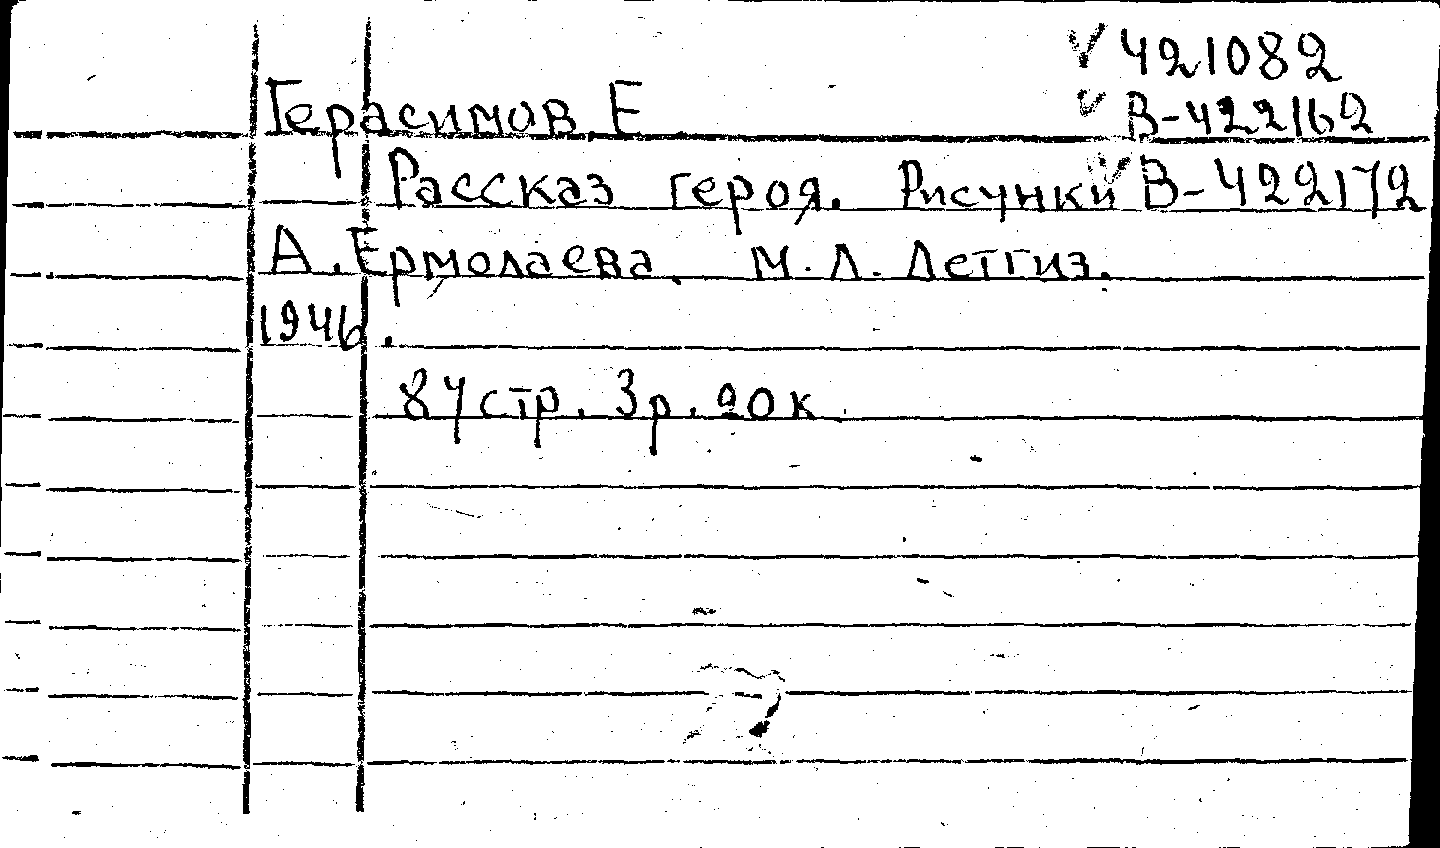 421082
Герасимов Е
В-422162
Рассказ героя. Рисунки В-422172
А. Ермолаева. М. Л. Детгиз.
1946.
84 стр. 3р. 20к